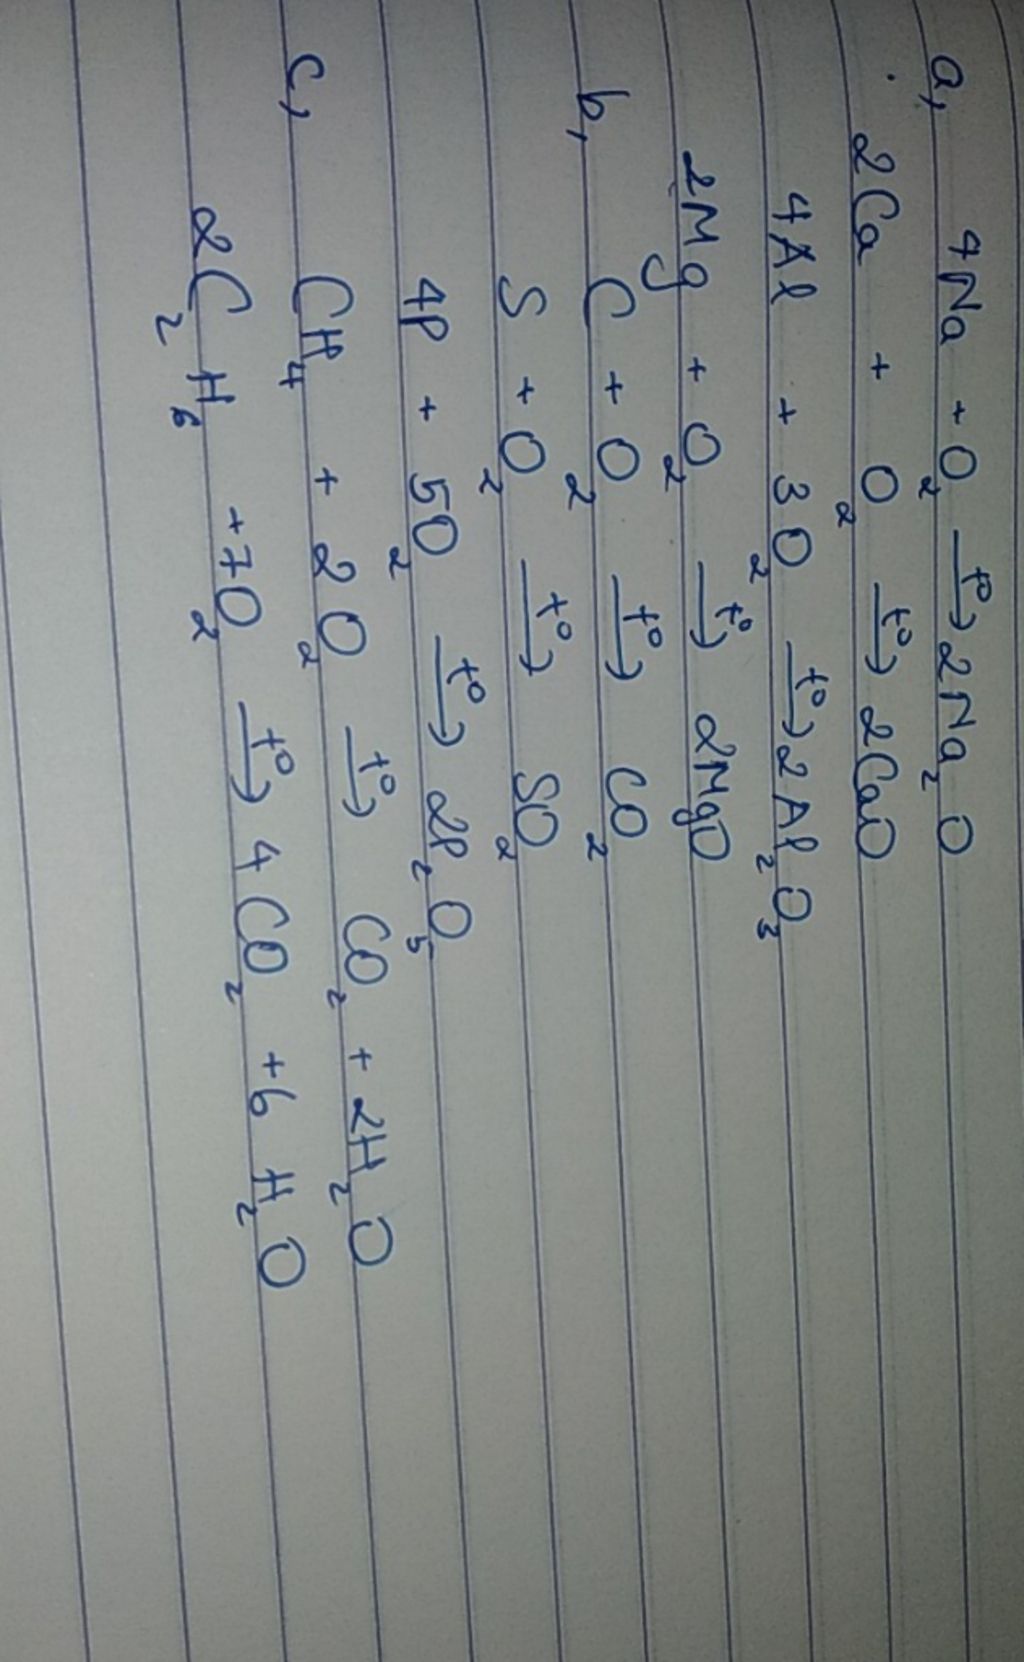 a, 4Na + O₂ —t°→ 2Na₂O
2Ca + O₂ —t°→ 2CaO
4Al + 3O₂ —t°→ 2Al₂O₃
2Mg + O₂ —t°→ 2MgO
b, C + O₂ —t°→ CO₂
S + O₂ —t°→ SO₂
4P + 5O₂ —t°→ 2P₂O₅
c, CH₄ + 2O₂ —t°→ CO₂ + 2H₂O
2C₂H₆ + 7O₂ —t°→ 4CO₂ + 6H₂O